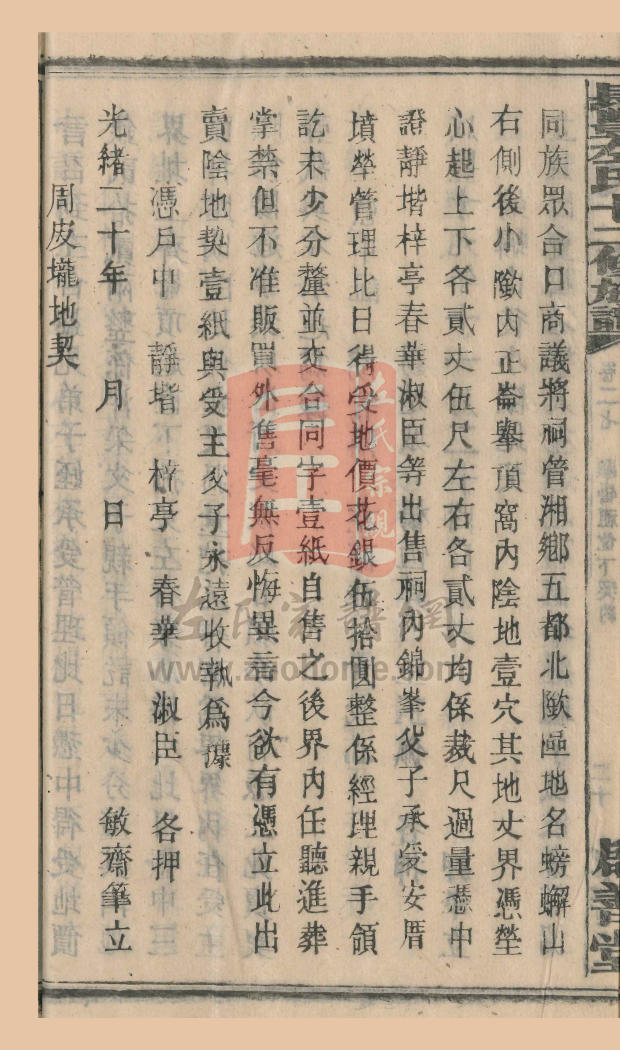 同族眾合口商議將祠管湘鄉五都北歐區地名螃蠏山
右側後小歐內正崙舉頂窩內陰地壹穴其地丈界憑塋
心起上下各貳丈伍尺左右各貳丈均係裁尺過量憑中
證靜堦梓亭春華淑臣等出售祠內錦峯父子承受安厝
墳塋管理比日得受地價花銀伍拾圓整係經理親手領
訖未少分釐並交合同字壹紙自售之後界內任聽進葬
掌禁但不准販買外售毫無反悔異言今欲有憑立此出
賣陰地契壹紙與受主父子永遠收執爲據
憑戶中 靜堦 梓亭 春華 淑臣 各押
光緒二十年 月 日 敏齋筆立
周皮壠地契
左氏宗親
左氏家譜網
www.zuohome.com